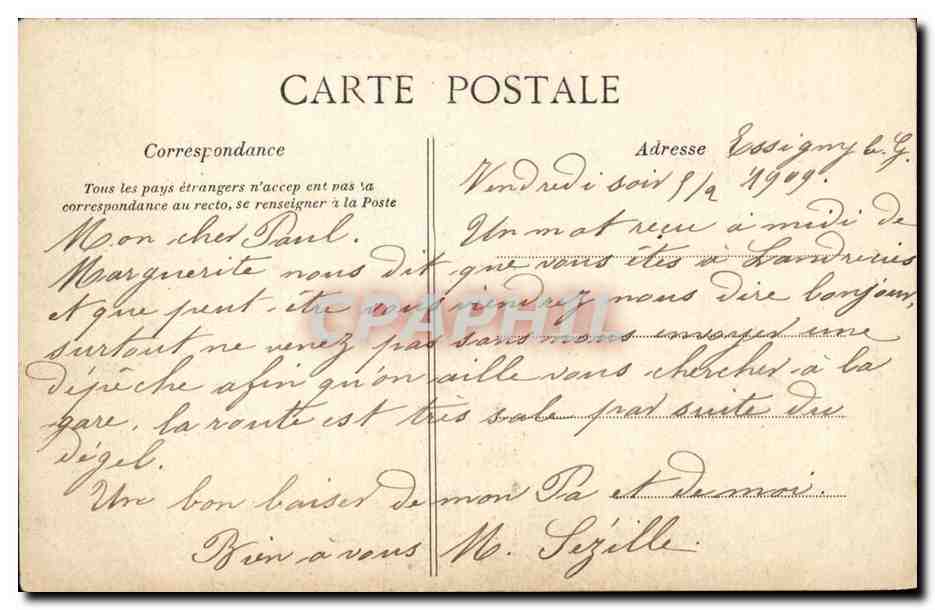 CARTE POSTALE
Correspondance
Tous les pays étrangers n'accep ent pas la
correspondance au recto, se renseigner à la Poste
Adresse
Essigny le G.
Vendredi soir 5/2 1909.
Mon cher Paul. Un mot reçu à midi de
Marguerite nous dit que vous êtes à Landrecies
et que peut-être vous viendrez nous dire bonjour,
surtout ne venez pas sans nous envoyer une
dépêche afin qu'on aille vous chercher à la
gare, la route est très sale par suite du
dégel.
Un bon baiser de mon Pa et de moi.
Bien à vous M. Sézille.
CPAPHIL